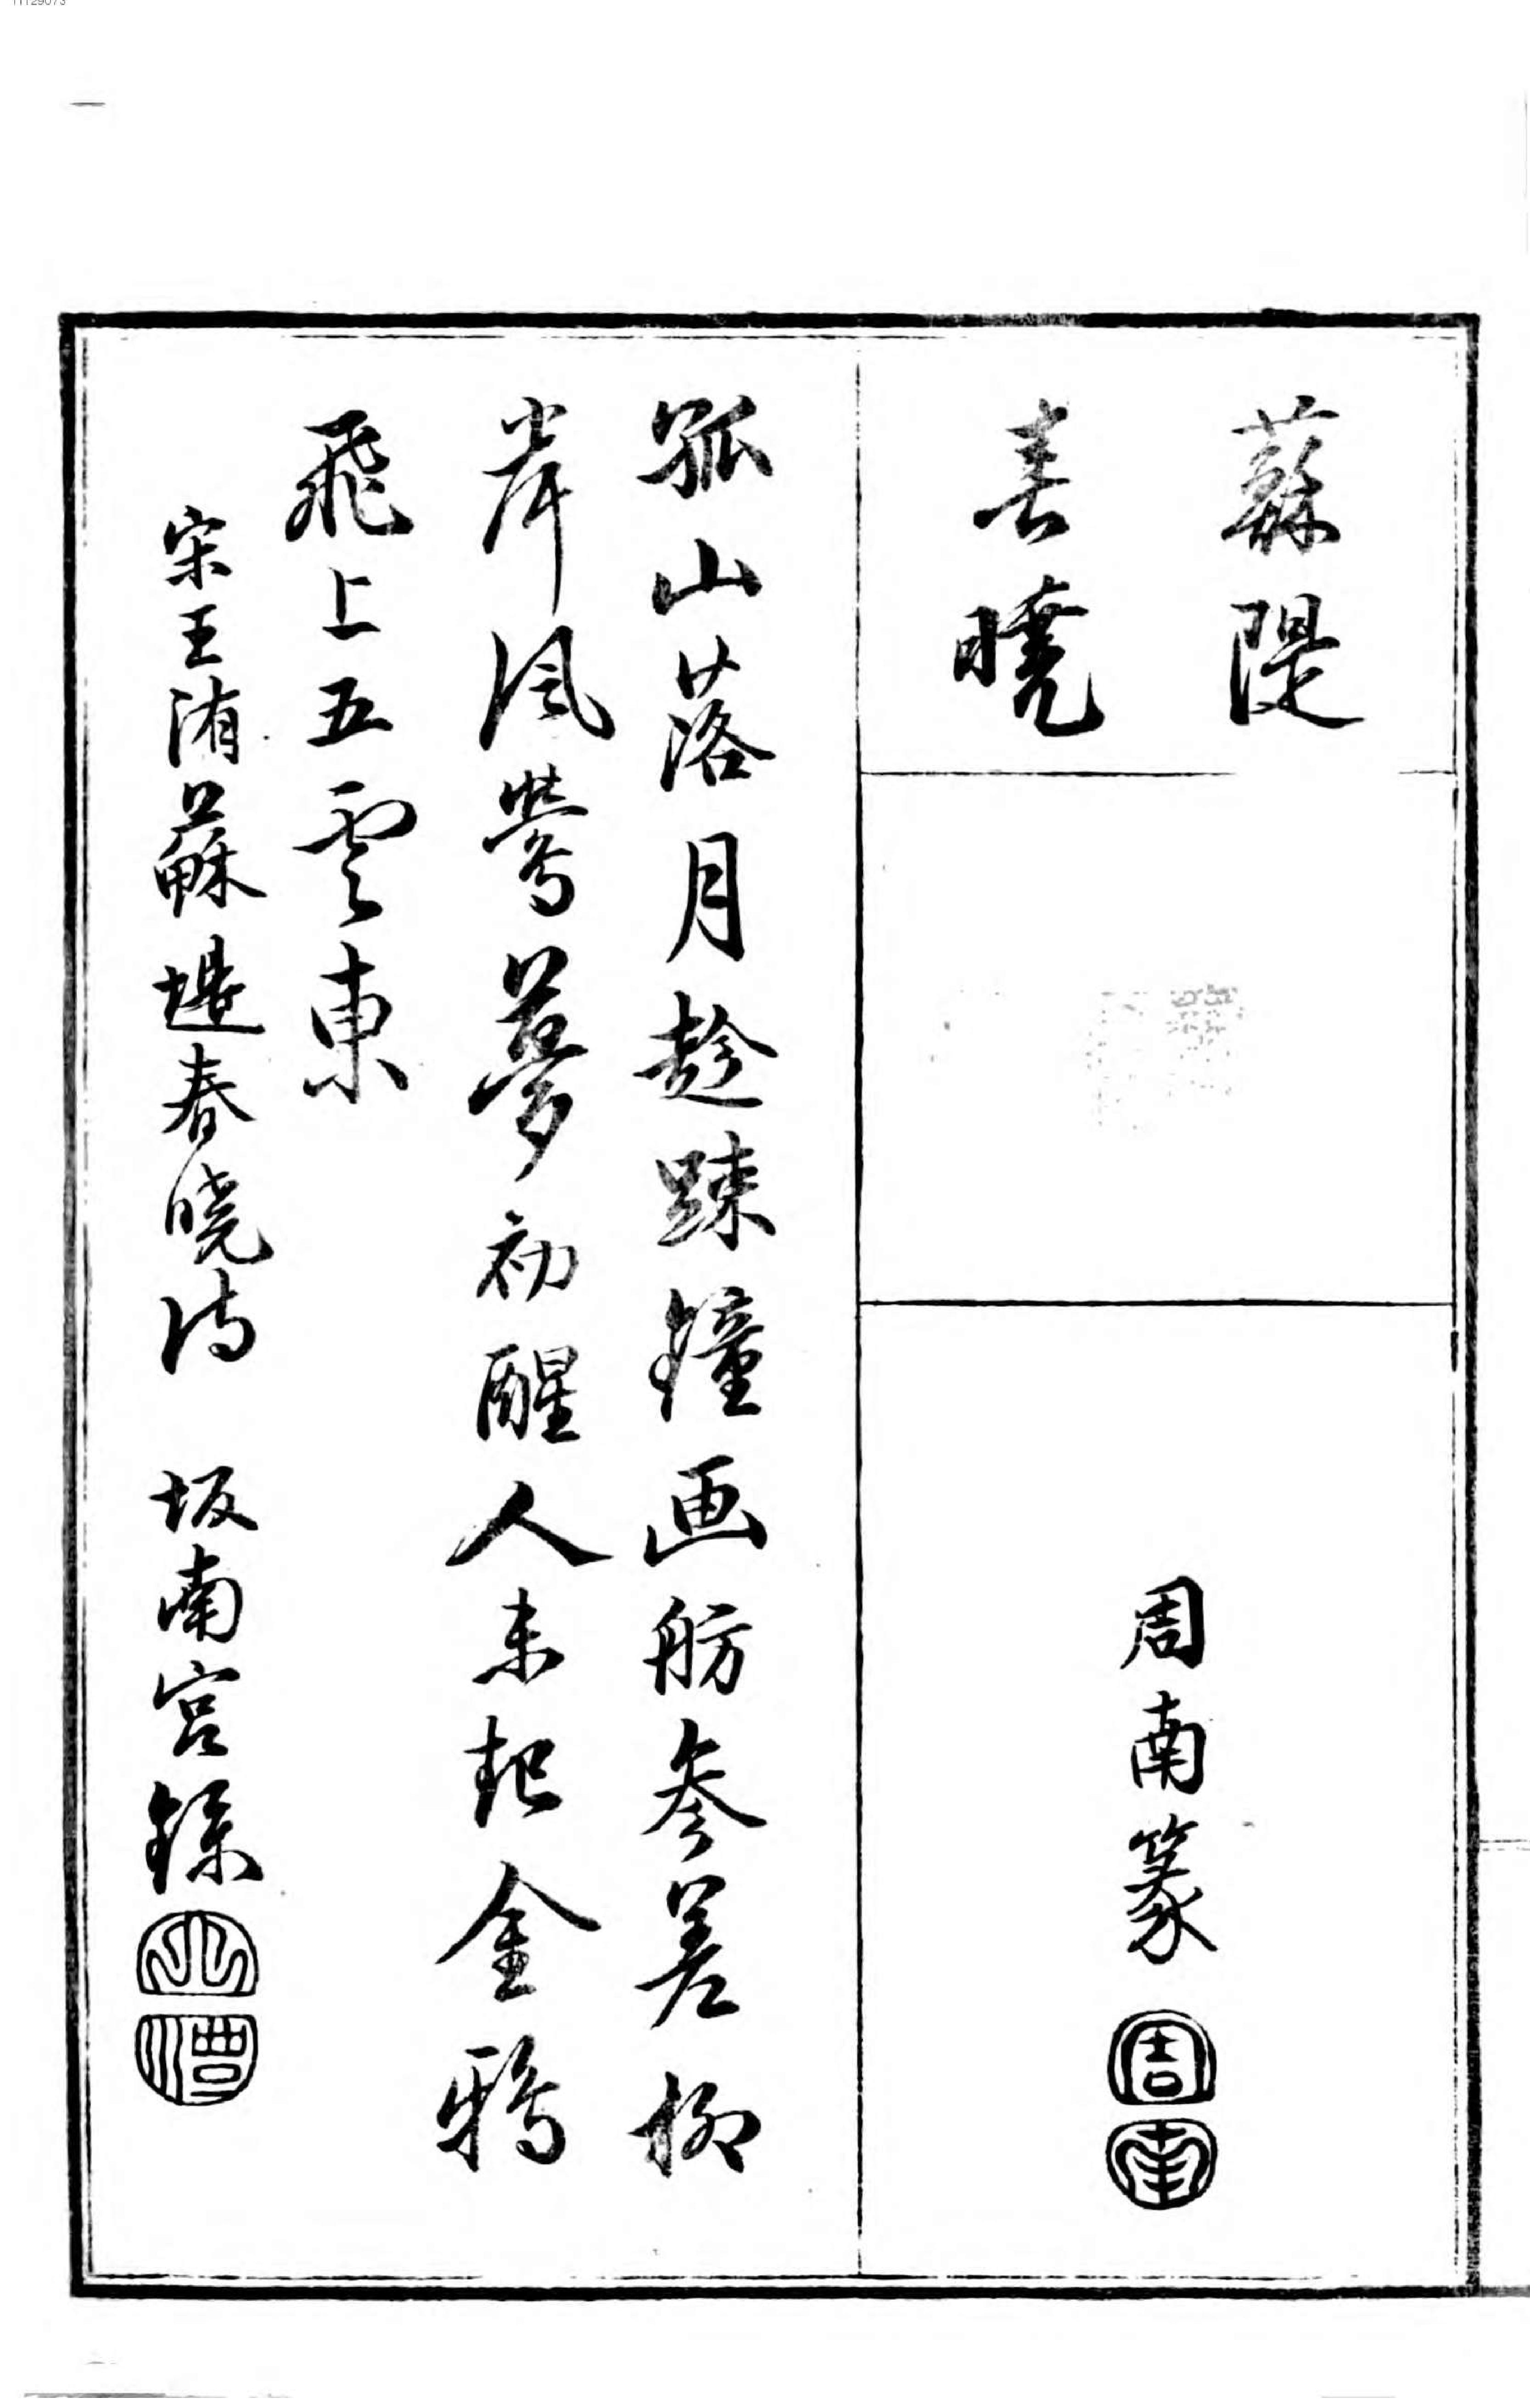 蘇隄
春曉
周南篆
周南
孤山落月趁踈鐘画舫參差柳
岸風鶯夢初醒人未起金鴉
飛上五雲東
宋王洧蘇堤春曉詩 坂南宮錄